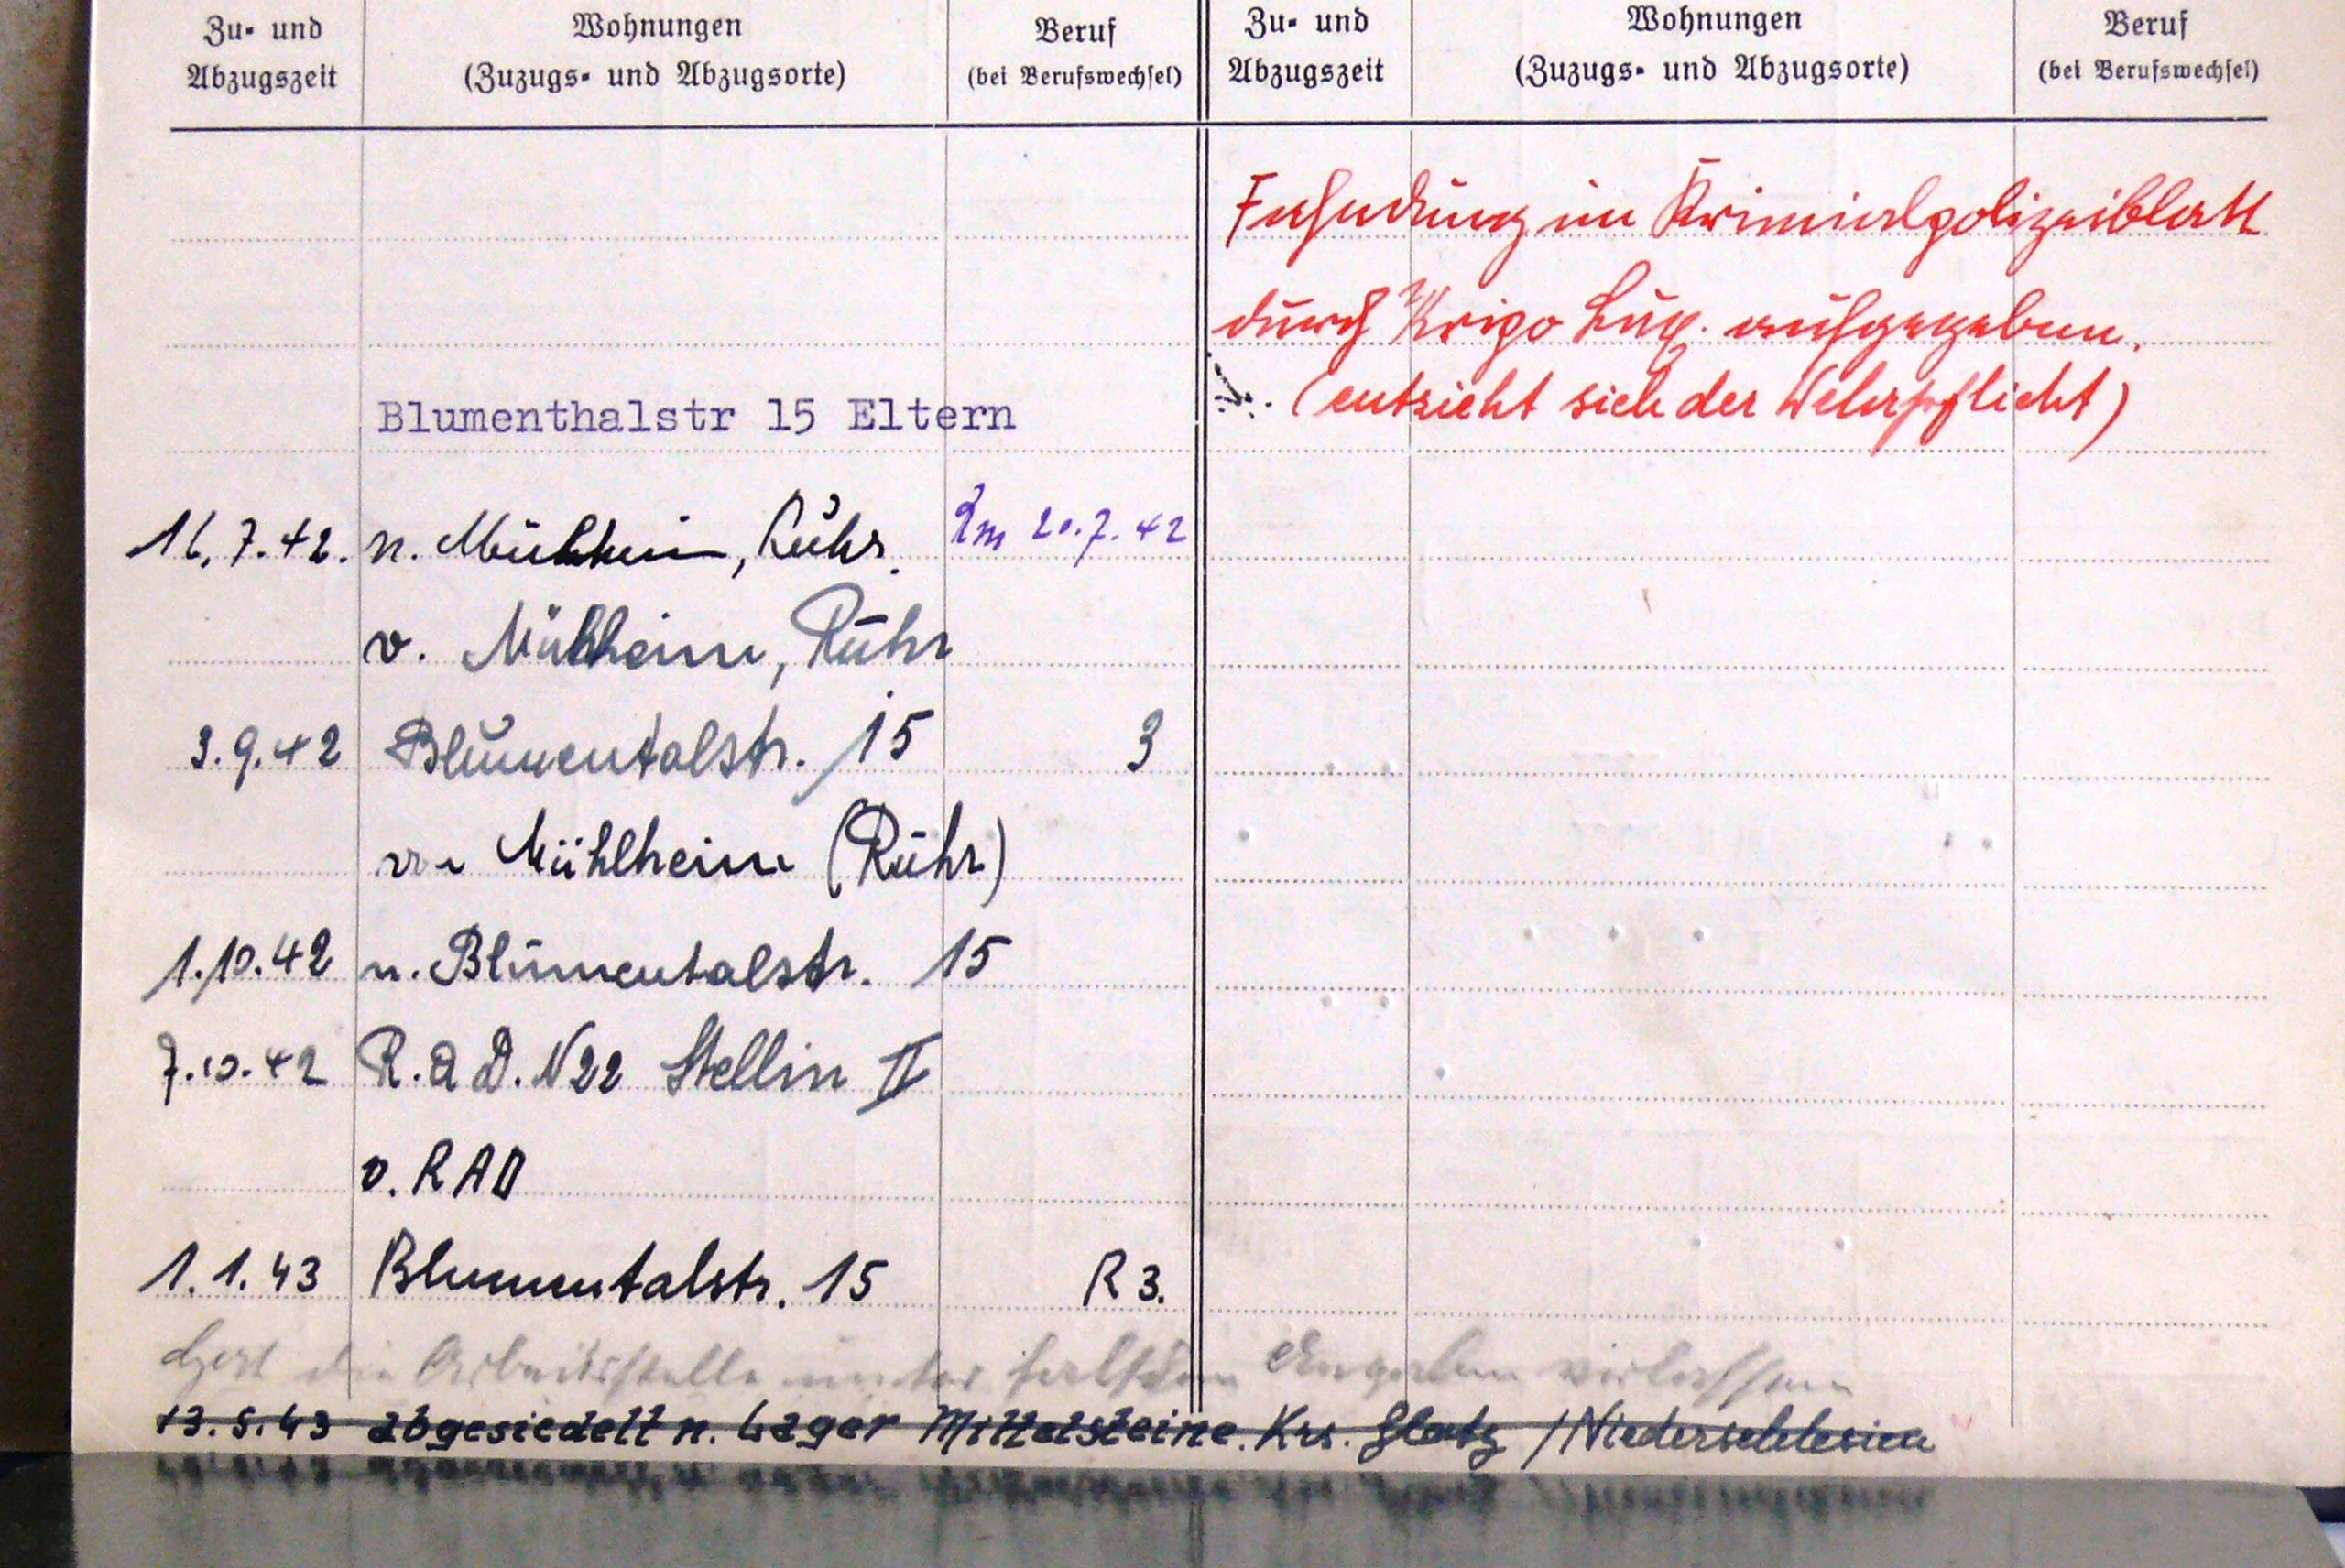 Zu- und
Abzugszeit
Wohnungen
(Zuzugs- und Abzugsorte)
Beruf
(bei Berufswechsel)
Zu- und
Abzugszeit
Wohnungen
(Zuzugs- und Abzugsorte)
Beruf
(bei Berufswechsel)
Blumenthalstr 15 Eltern
16.7.42. n. Mülheim, Ruhr. 20.7.42
v. Mülheim, Ruhr
3.9.42 Blumentalstr. 15 3
von Mühlheim (Ruhr)
1.10.42 n. Blumentalstr. 15
7.10.42 R.A.D. N22 Stellin II
v. RAD
1.1.43 Blumentalstr. 15 R 3.
Hat die Arbeitsstelle unter falschen Angaben verlassen
13.5.43 abgesiedelt n. Lager Mittelsteine. Krs. Glatz / Niederschlesien
Fahndung im Kriminalpolizeiblatt
durch Kripo Lux. aufgegeben.
(entzieht sich der Wehrpflicht)